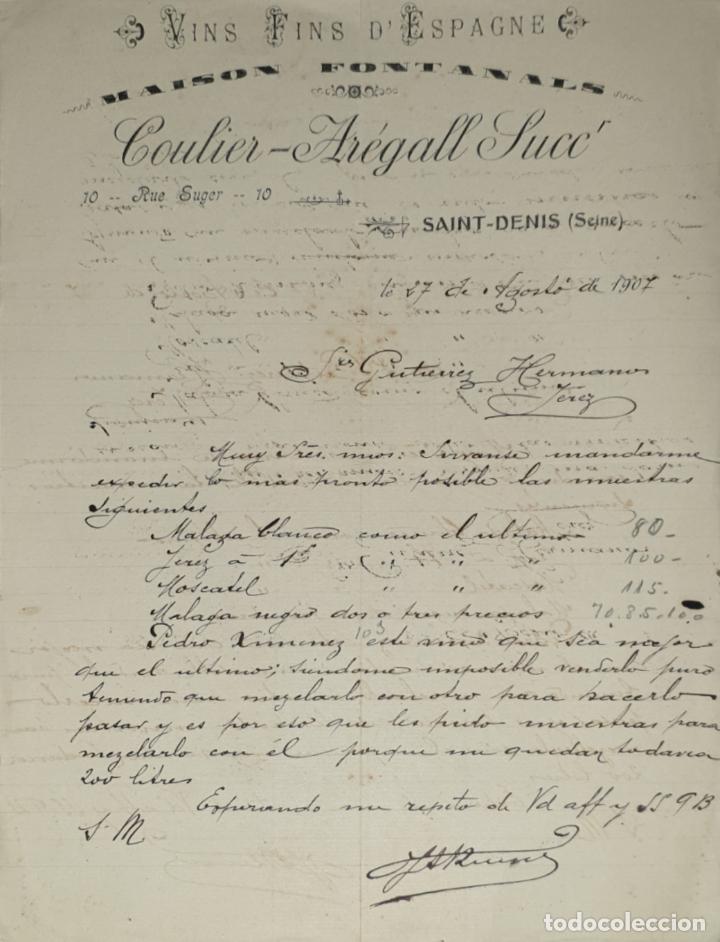 VINS FINS D'ESPAGNE
MAISON FONTANALS
Coulier-Arégall Succr
10 -- Rue Suger -- 10
SAINT-DENIS (Seine)
le 27 de Agosto de 1907
Sres Gutierrez Hermanos
Jerez
Muy Sres. mios: Sirvanse mandarme
expedir lo mas pronto posible las muestras
siguientes
Malaga blanco como el ultimo 80-
Jerez à " " " 100-
Moscatel " " " 115-
Malaga negro dos o tres precios 70.85.100
Pedro Ximenez 105 este vino que sea mejor
que el ultimo; siendome imposible venderlo puro
teniendo que mezclarlo con otro para hacerlo
pasar y es por eso que les pido muestras para
mezclarlo con él porque me quedan todavia
200 litres
Esperando me repito de Vd aff y SS Q B
S. M
todocoleccion